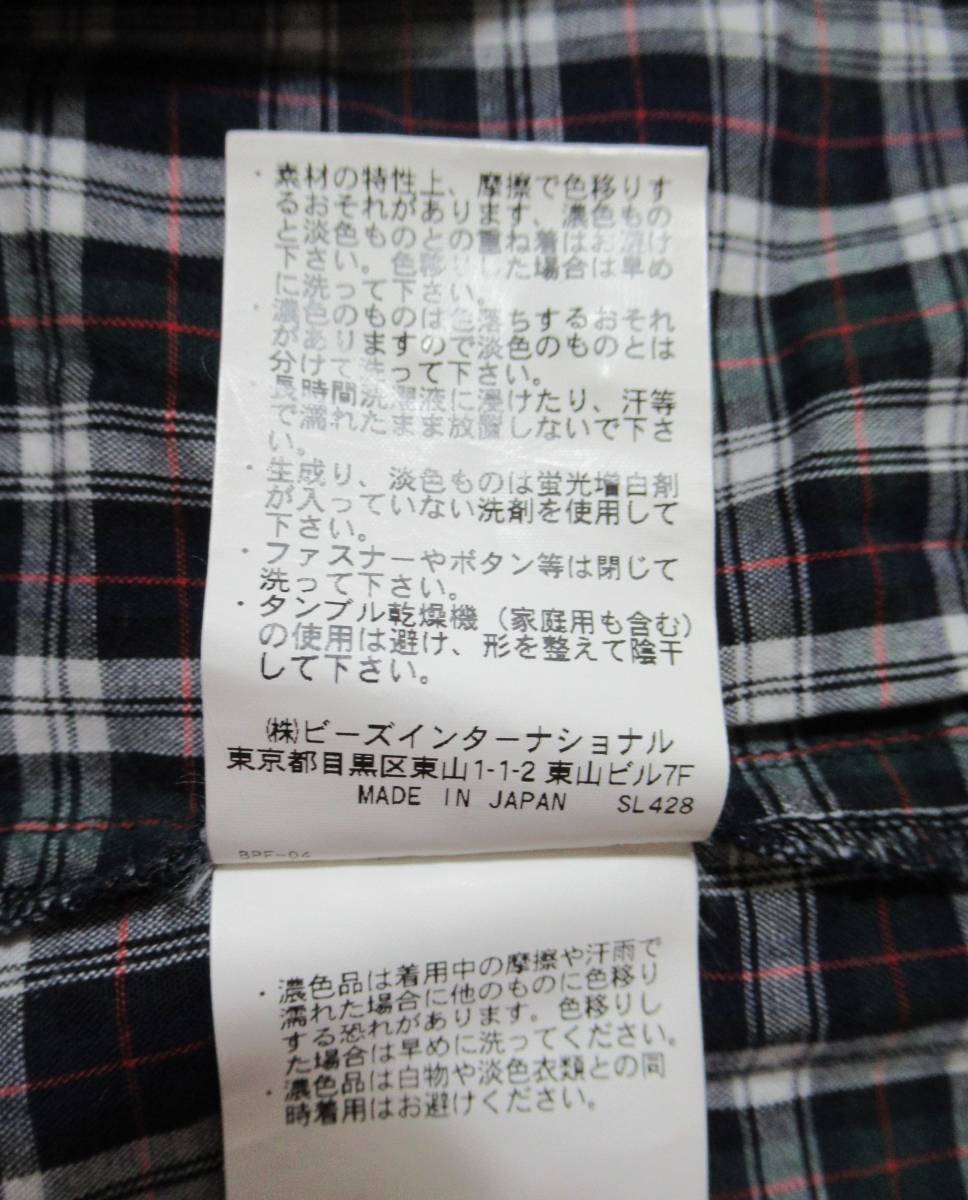 ・素材の特性上、摩擦で色移りす
るおそれがあります、濃色もの
と淡色ものとの重ね着はお避け
下さい。色移りした場合は早め
に洗って下さい。
・濃色のものは色落ちするおそれ
がありますので淡色のものとは
分けて洗って下さい。
・長時間洗濯液に浸けたり、汗等
で濡れたまま放置しないで下さ
い。
・生成り、淡色ものは蛍光増白剤
が入っていない洗剤を使用して
下さい。
・ファスナーやボタン等は閉じて
洗って下さい。
・タンブル乾燥機（家庭用も含む）
の使用は避け、形を整えて陰干
して下さい。
㈱ビーズインターナショナル
東京都目黒区東山1-1-2 東山ビル7F
MADE IN JAPAN SL428
BPF-04
・濃色品は着用中の摩擦や汗雨で
濡れた場合に他のものに色移り
する恐れがあります。色移りし
た場合は早めに洗ってください。
・濃色品は白物や淡色衣類との同
時着用はお避けください。